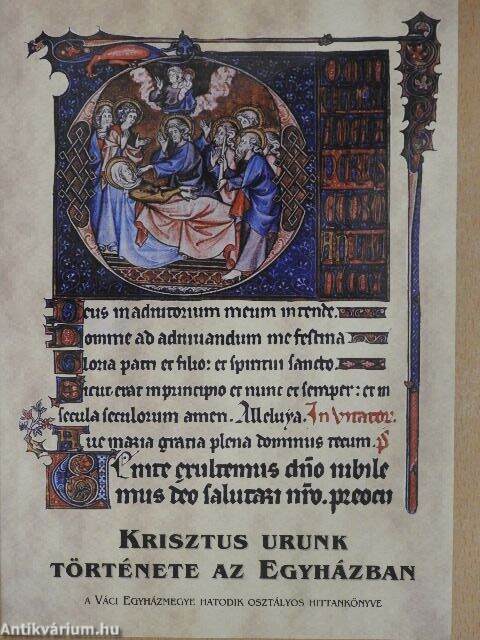 Deus in adiutorium meum intende.
Domine ad adiuuandum me festina
Gloria patri et filio: et spiritui sancto.
Sicut erat in principio et nunc et semper: et in
secula seculorum amen. Alleluya. Inuitator.
Aue maria gratia plena dominus tecum. ps
Uenite exultemus dño iubile
mus deo salutari nr̃o. preocu
KRISZTUS URUNK
TÖRTÉNETE AZ EGYHÁZBAN
A VÁCI EGYHÁZMEGYE HATODIK OSZTÁLYOS HITTANKÖNYVE
Antikvárium.hu